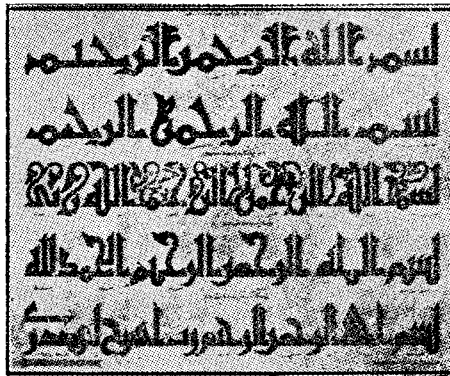 بسم الله الرحمن الرحيم
بسم الله الرحمن الرحيم
بسم الله الرحمن
بسم الله الرحمن الرحيم الحمد لله
بسم الله الرحمن الرحيم رب اشرح لي صدري